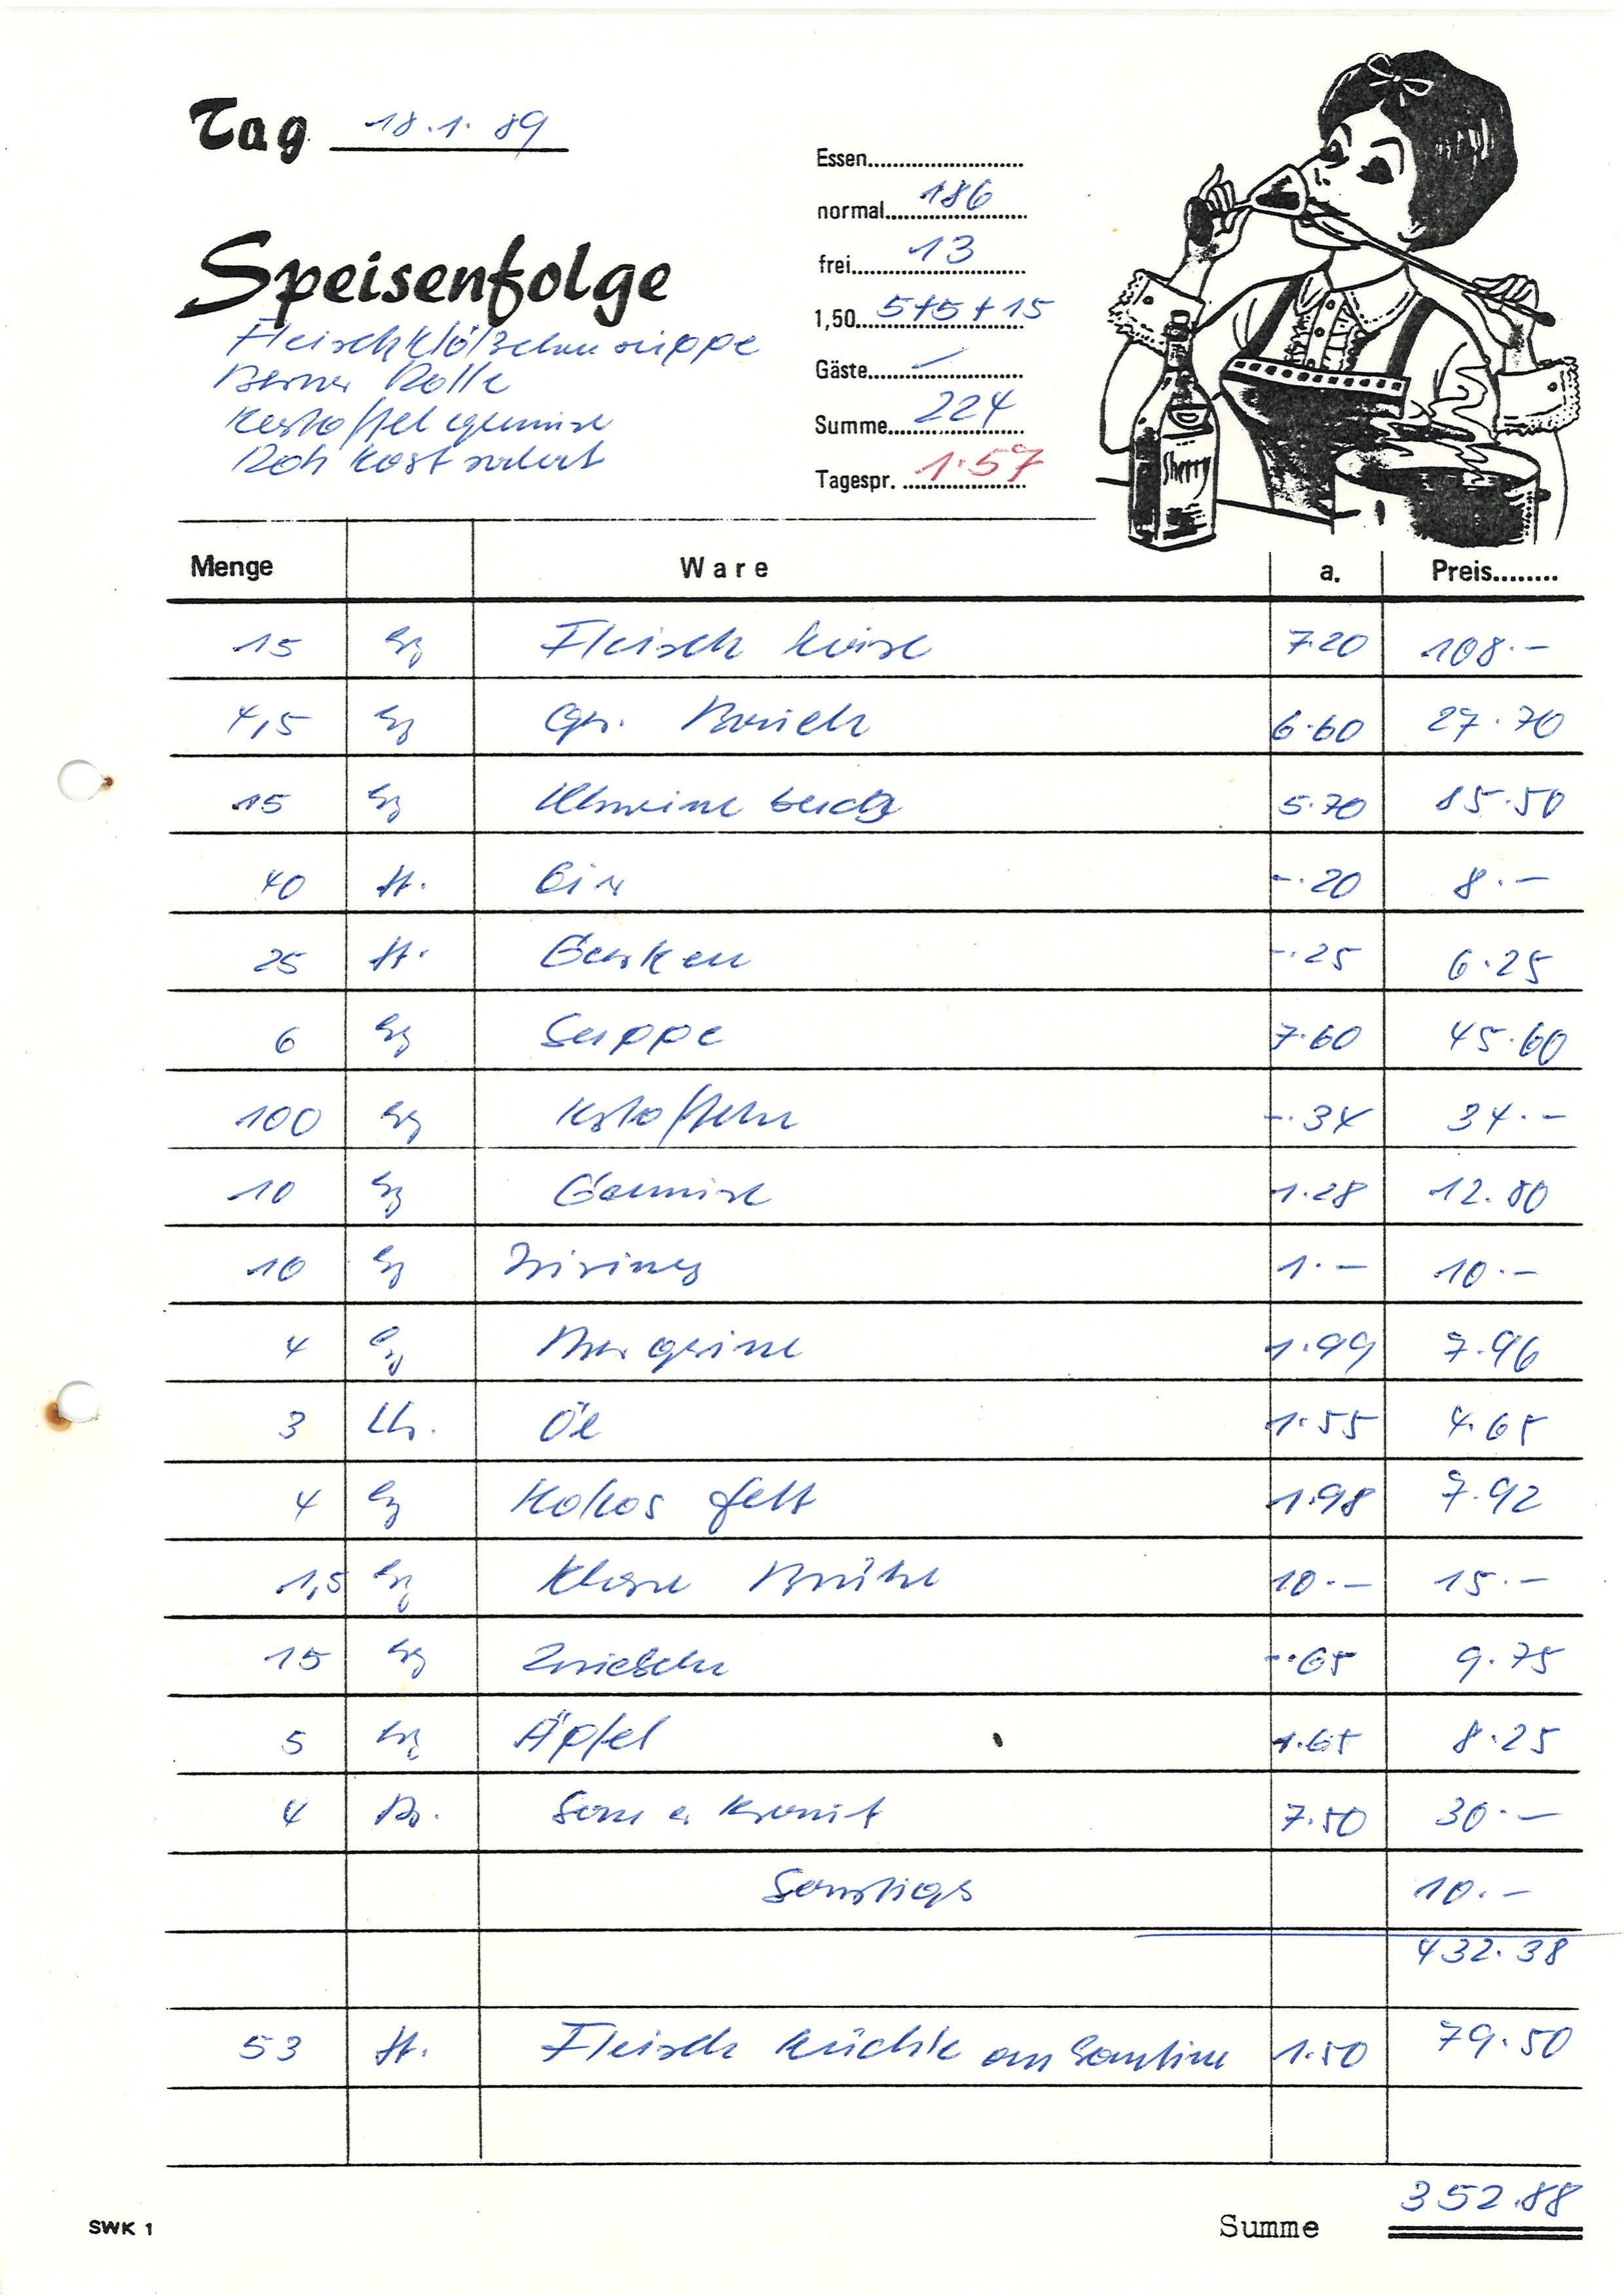 Tag 18.1.89
Essen
normal 186
frei 13
1,50 5+5+15
Gäste –
Summe 224
Tagespr. 1.57
Speisenfolge
Fleischklößchensuppe
Berner Rolle
Kartoffelgemüse
Rohkostsalat
Sherry
Menge Ware a. Preis
15 kg Fleisch 7.20 108.–
4,5 kg gr. Bauch 6.60 27.70
15 kg Schweine 5.70 85.50
40 St. Eier –.20 8.–
25 St. Gurken –.25 6.25
6 kg Suppe 7.60 45.60
100 kg Kartoffeln –.34 34.–
10 kg Gemüse 1.28 12.80
10 kg 1.– 10.–
4 kg Margarine 1.99 7.96
3 Ltr. Öl 1.55 4.65
4 kg Kokosfett 1.98 7.92
1,5 kg Klare Brühe 10.– 15.–
15 kg Zwiebeln –.65 9.75
5 kg Äpfel 1.65 8.25
4 Do. Sauerkraut 7.50 30.–
Sonstiges 10.–
432.38
53 St. Fleischküchle an Kantine 1.50 79.50
352.88
Summe
SWK 1